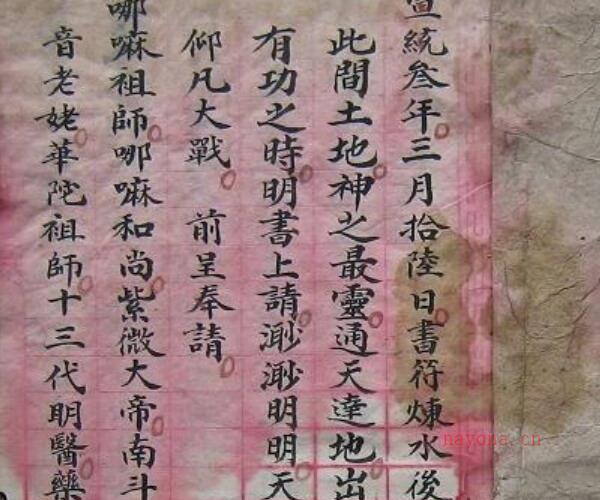 宣統叁年三月拾陸日書符煉水後
此間土地神之最靈通天達地出
有功之時明書上請渺渺明明天
仰凡大戰　前呈奉請
哪嘛祖師哪嘛和尚紫微大帝南斗
音老姥華陀祖師十三代明醫藥
nayona.cn